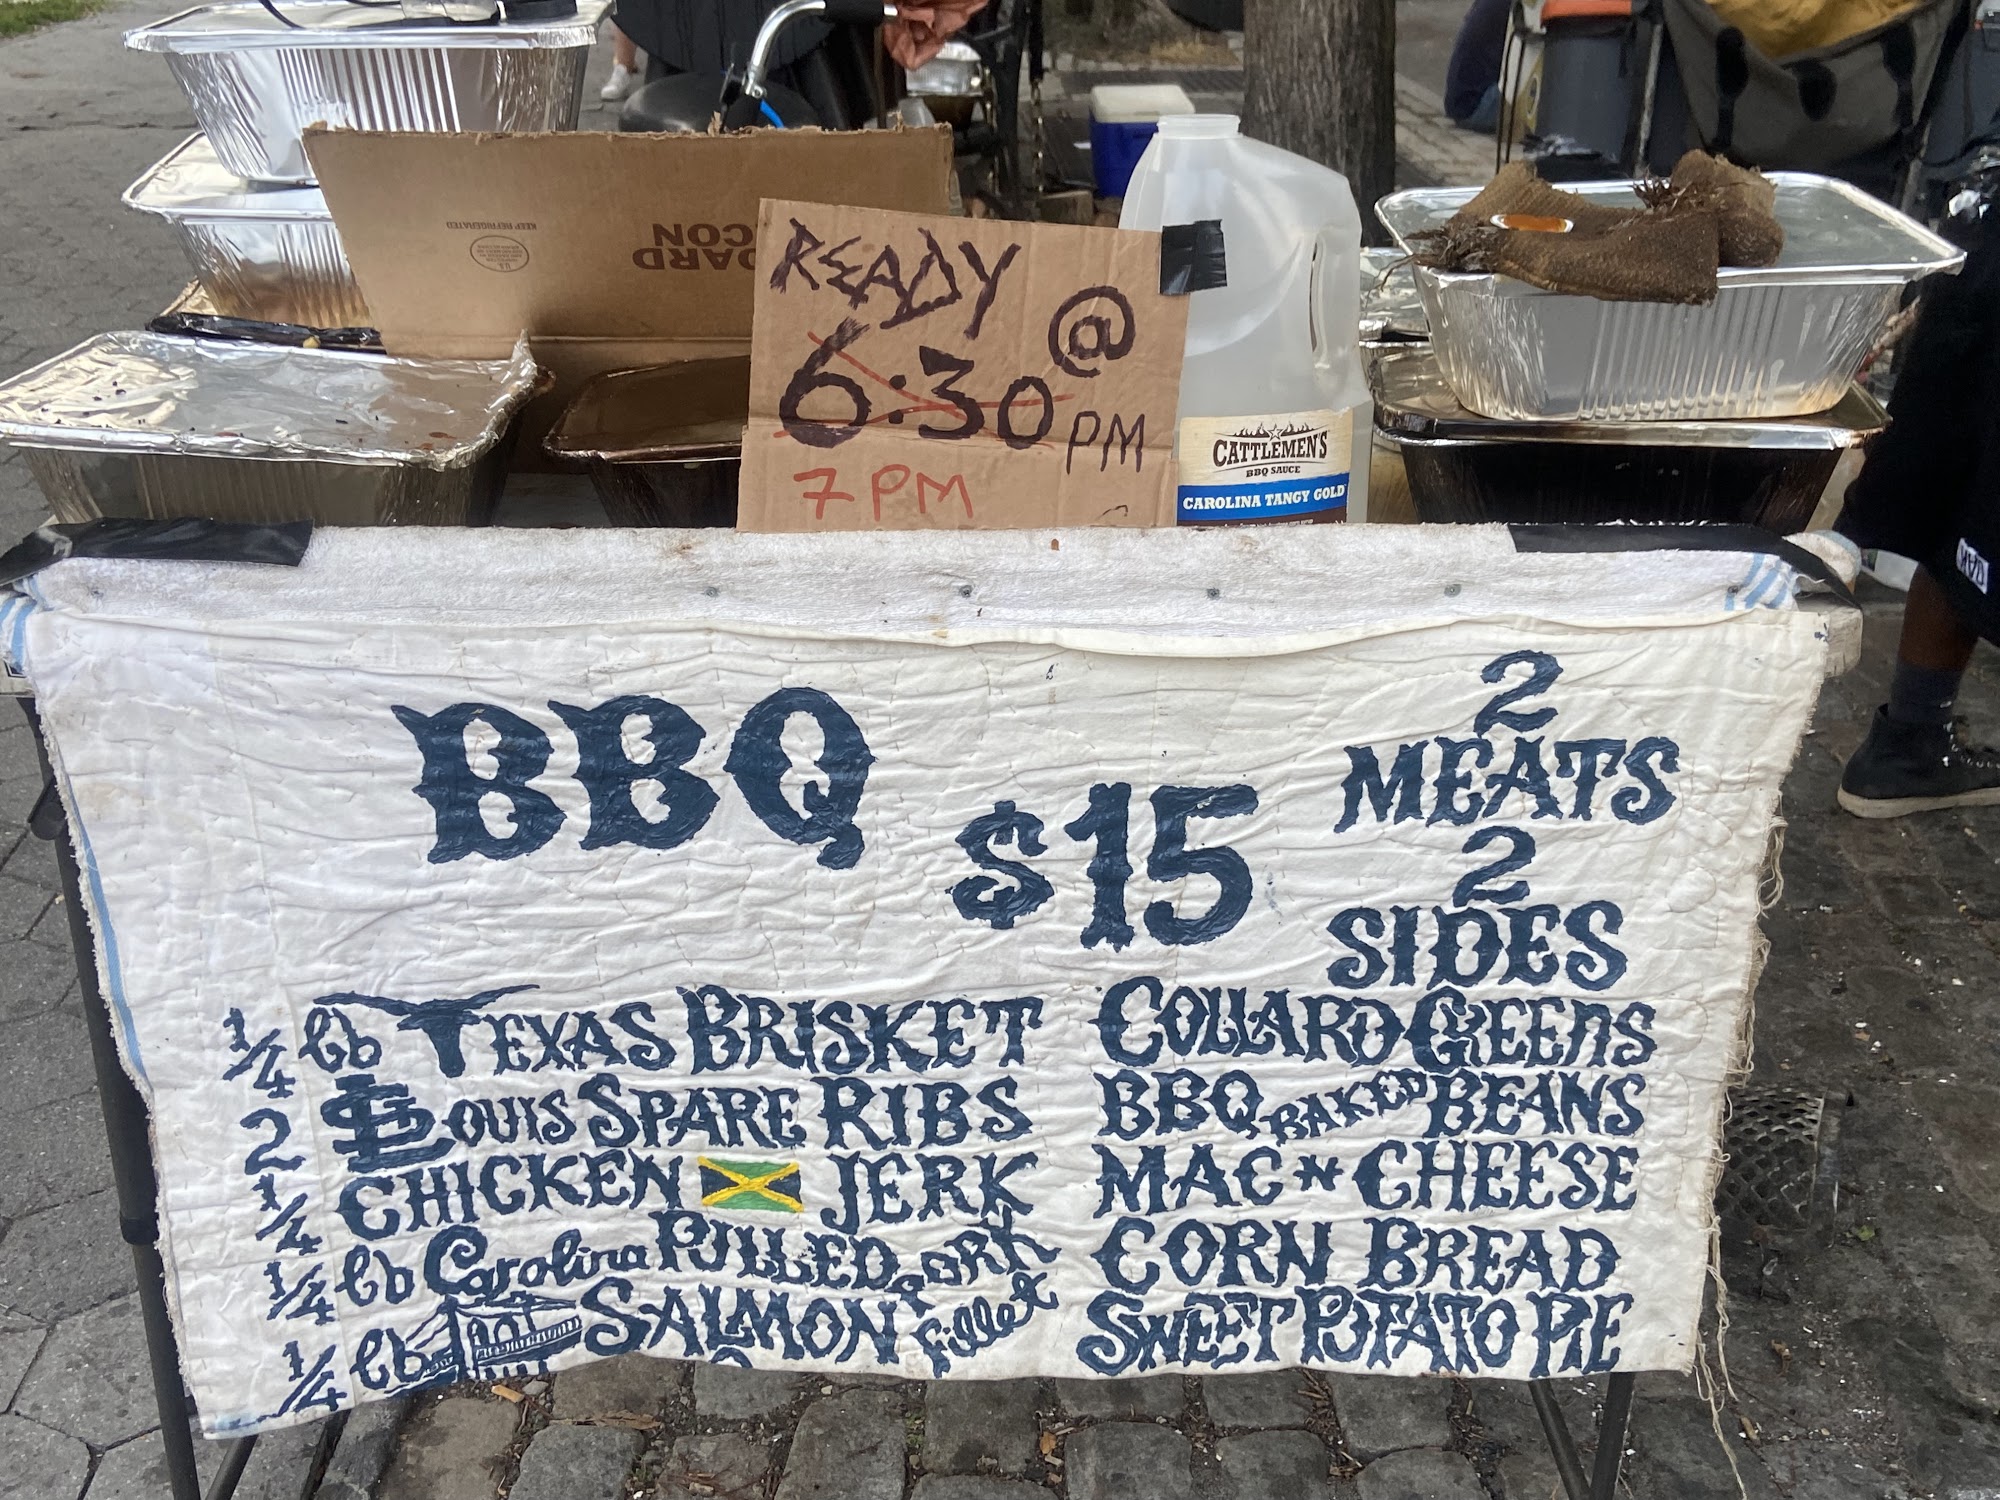 KEEP REFRIGERATED
READY
@
6:30 PM
7 PM
CATTLEMEN'S
BBQ SAUCE
CAROLINA TANGY GOLD
BBQ
$15
2
MEATS
2
SIDES
1/4 lb TEXAS BRISKET
2 ST LOUIS SPARE RIBS
1/4 CHICKEN JERK
1/4 lb Carolina PULLED PORK
1/4 lb SALMON fillet
COLLARD GREENS
BBQ BAKED BEANS
MAC N CHEESE
CORN BREAD
SWEET POTATO PIE